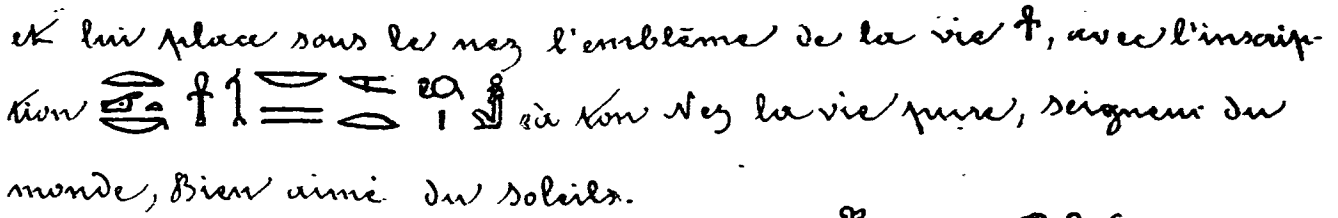 et lui place sous le nez l'emblême de la vie ☥, avec l'inscrip-
tion « à ton Nez la vie pure, seigneur du
monde, Bien aimé du soleil ».